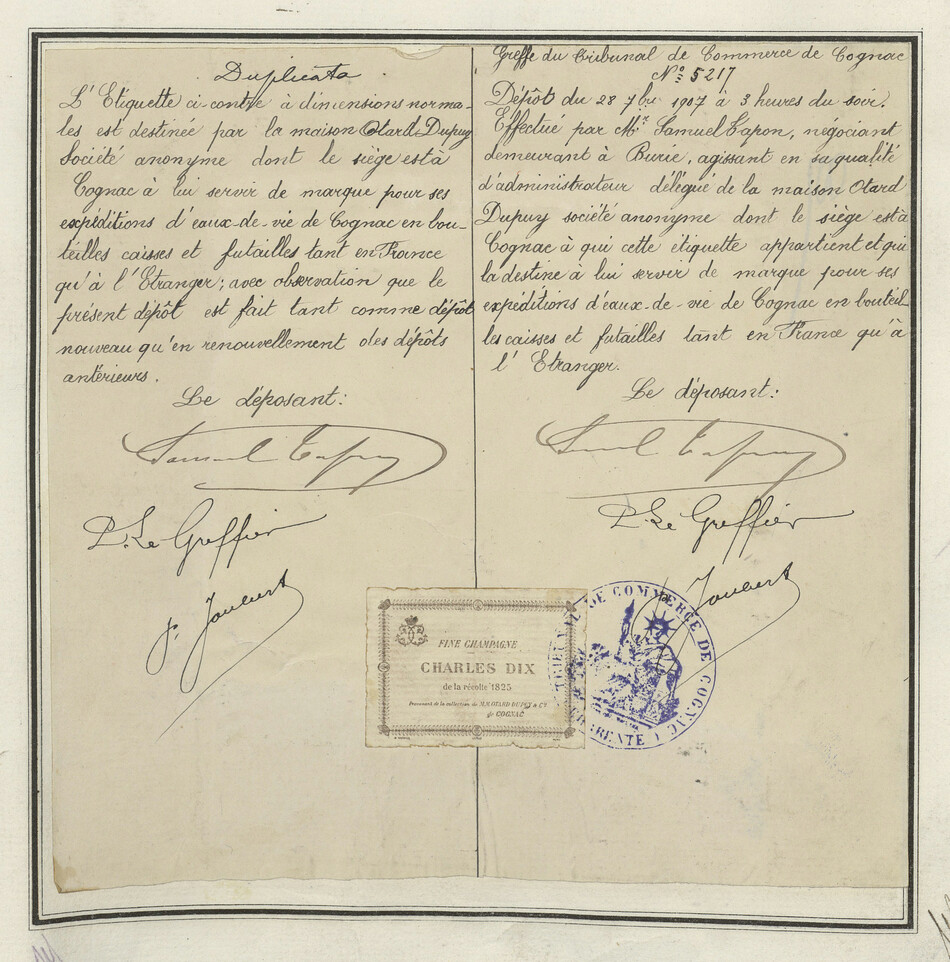 Duplicata
L'Etiquette ci-contre à dimensions norma-
les est destinée par la maison Otard-Dupuy
Société anonyme dont le siège est à
Cognac à lui servir de marque pour ses
expéditions d'eaux-de-vie de Cognac en bou-
teilles caisses et futailles tant en France
qu'à l'Etranger; avec observation que le
présent dépôt est fait tant comme dépôt
nouveau qu'en renouvellement des dépôts
antérieurs.
Le déposant:
P. Le Greffier
p. Joubert
Greffe du Tribunal de Commerce de Cognac
No: 5217
Dépôt du 28 7bre 1907 à 3 heures du soir.
Effectué par Mr. Samuel Tapon, négociant
demeurant à Burie, agissant en sa qualité
d'administrateur délégué de la maison Otard
Dupuy société anonyme dont le siège est à
Cognac à qui cette étiquette appartient et qui
la destine à lui servir de marque pour ses
expéditions d'eaux-de-vie de Cognac en bouteil
les caisses et futailles tant en France qu'à
l'Etranger.
Le déposant:
P. Le Greffier
Joubert
FINE CHAMPAGNE
CHARLES DIX
de la récolte 1825
Provenant de la collection de MM. OTARD DUPUY & Co
de COGNAC
TRIBUNAL DE COMMERCE DE COGNAC
CHARENTE